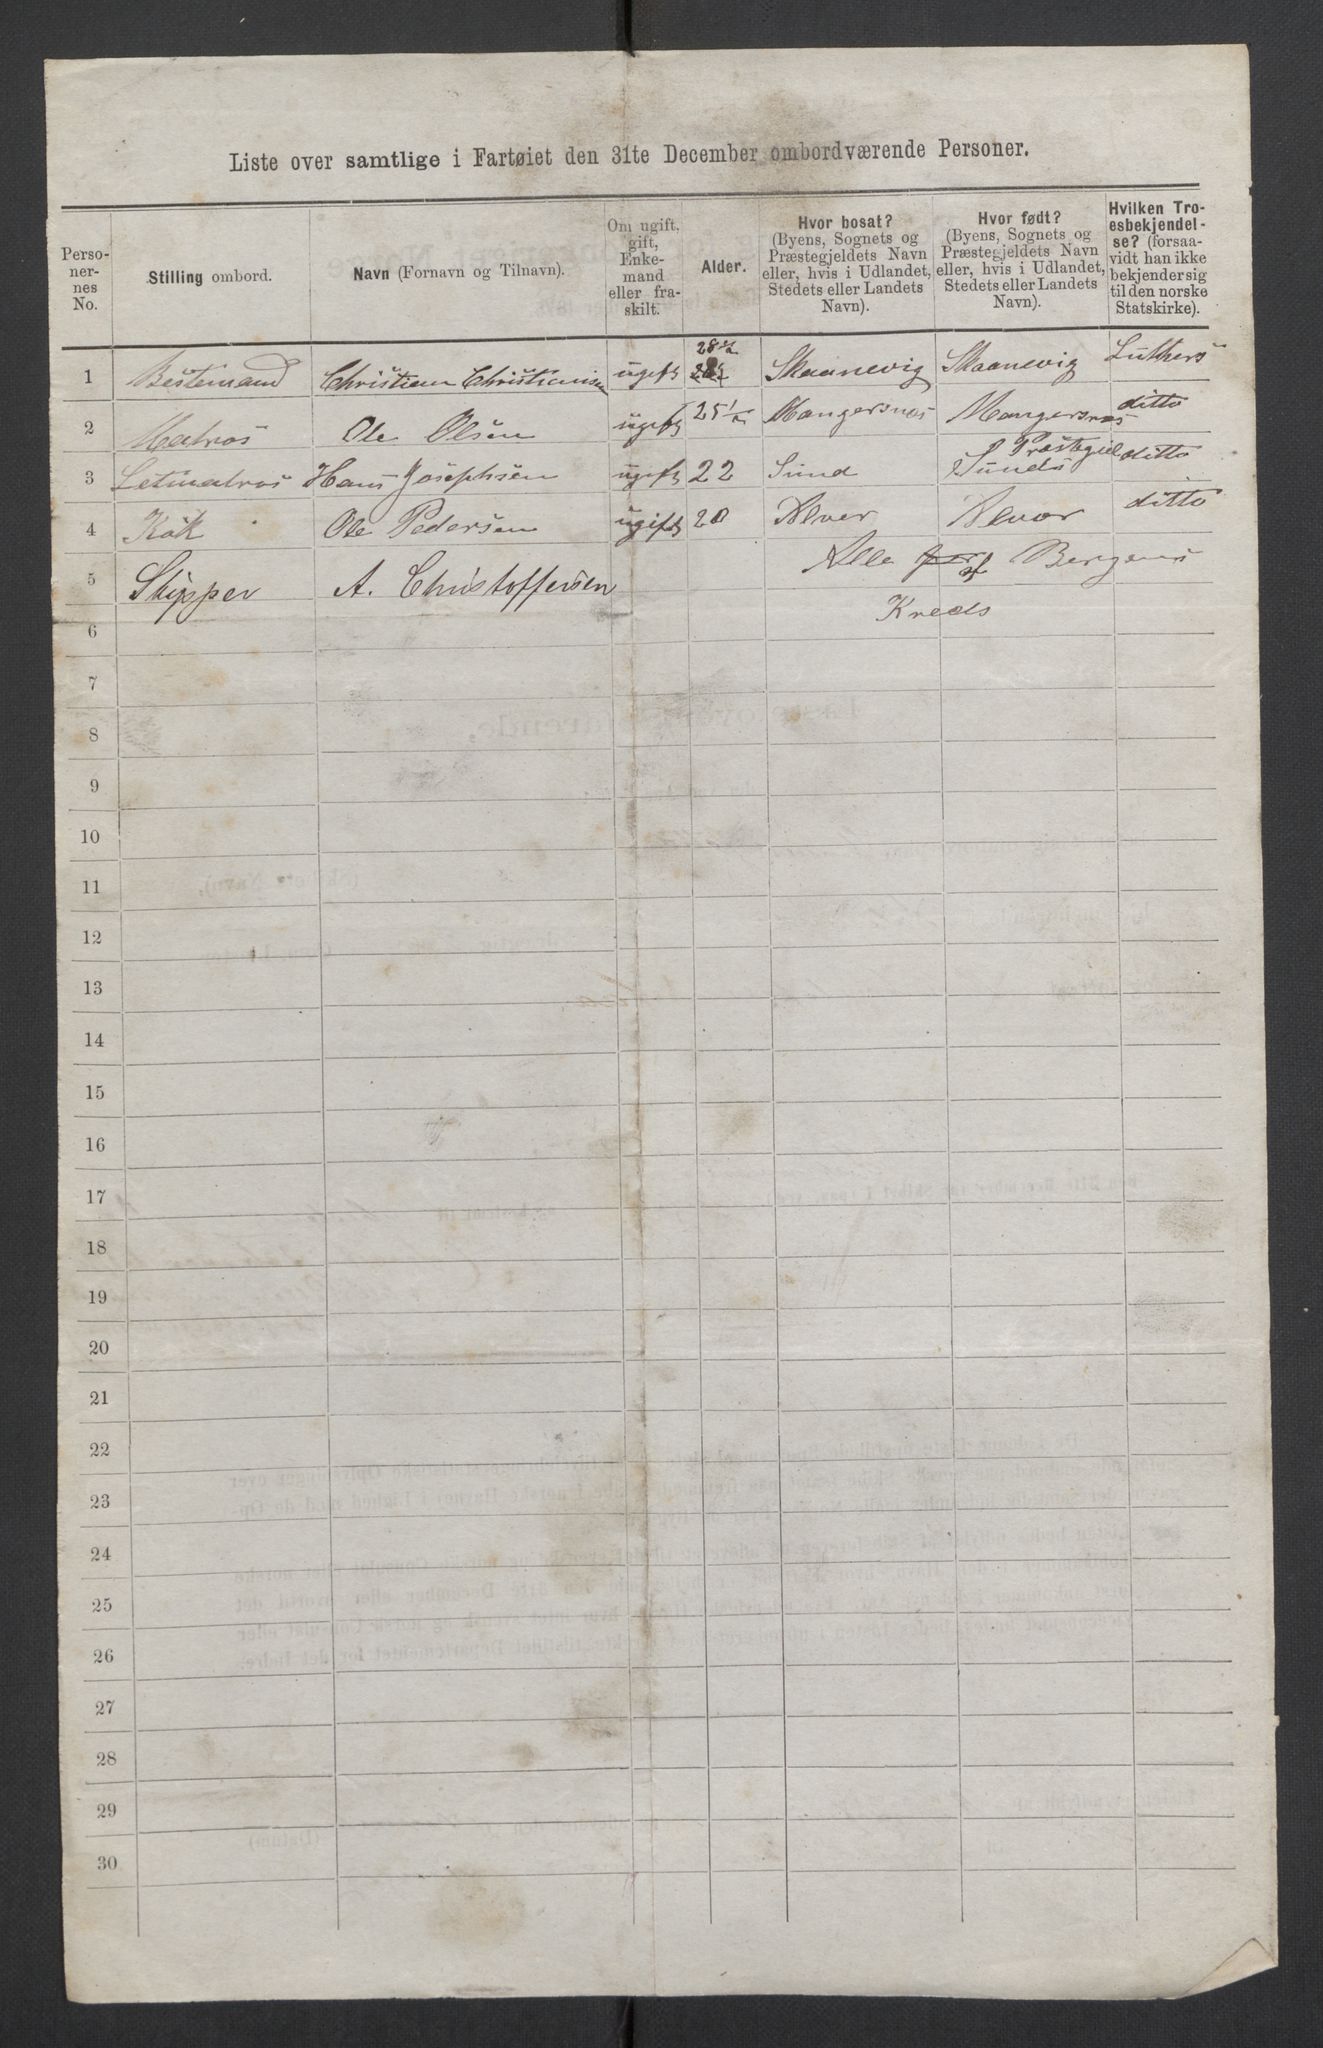 Liste over samtlige i Fartøiet den 31te December ombordværende Personer.
Perso-
ner-
nes
No.
Stilling ombord.
Navn (Fornavn og Tilnavn).
Om ugift,
gift,
Enke-
mand
eller fra-
skilt.
Alder.
Hvor bosat?
(Byens, Sognets og
Præstegjeldets Navn
eller, hvis i Udlandet,
Stedets eller Landets
Navn).
Hvor født?
(Byens, Sognets og
Præstegjeldets Navn
eller, hvis i Udlandet,
Stedets eller Landets
Navn).
Hvilken Tro-
esbekjendel-
se? (forsaa-
vidt han ikke
bekjender sig
til den norske
Statskirke).
28 1/2
1 Bestemand Christian Christiansen ugift Skaanevig Skaanevig Luthers
2 Matros Ole Olsen ugift 25 1/2 Mangersnæs Mangersnæs ditto
Præstegiel
3 Letmatros Hans Josephsen ugift 22 Sund Sunds ditto
4 Kok Ole Pedersen ugift 20 Alver Alver ditto
5 Skipper A. Christoffersen Alle af Bergens
6 Kreds
7
8
9
10
11
12
13
14
15
16
17
18
19
20
21
22
23
24
25
26
27
28
29
30